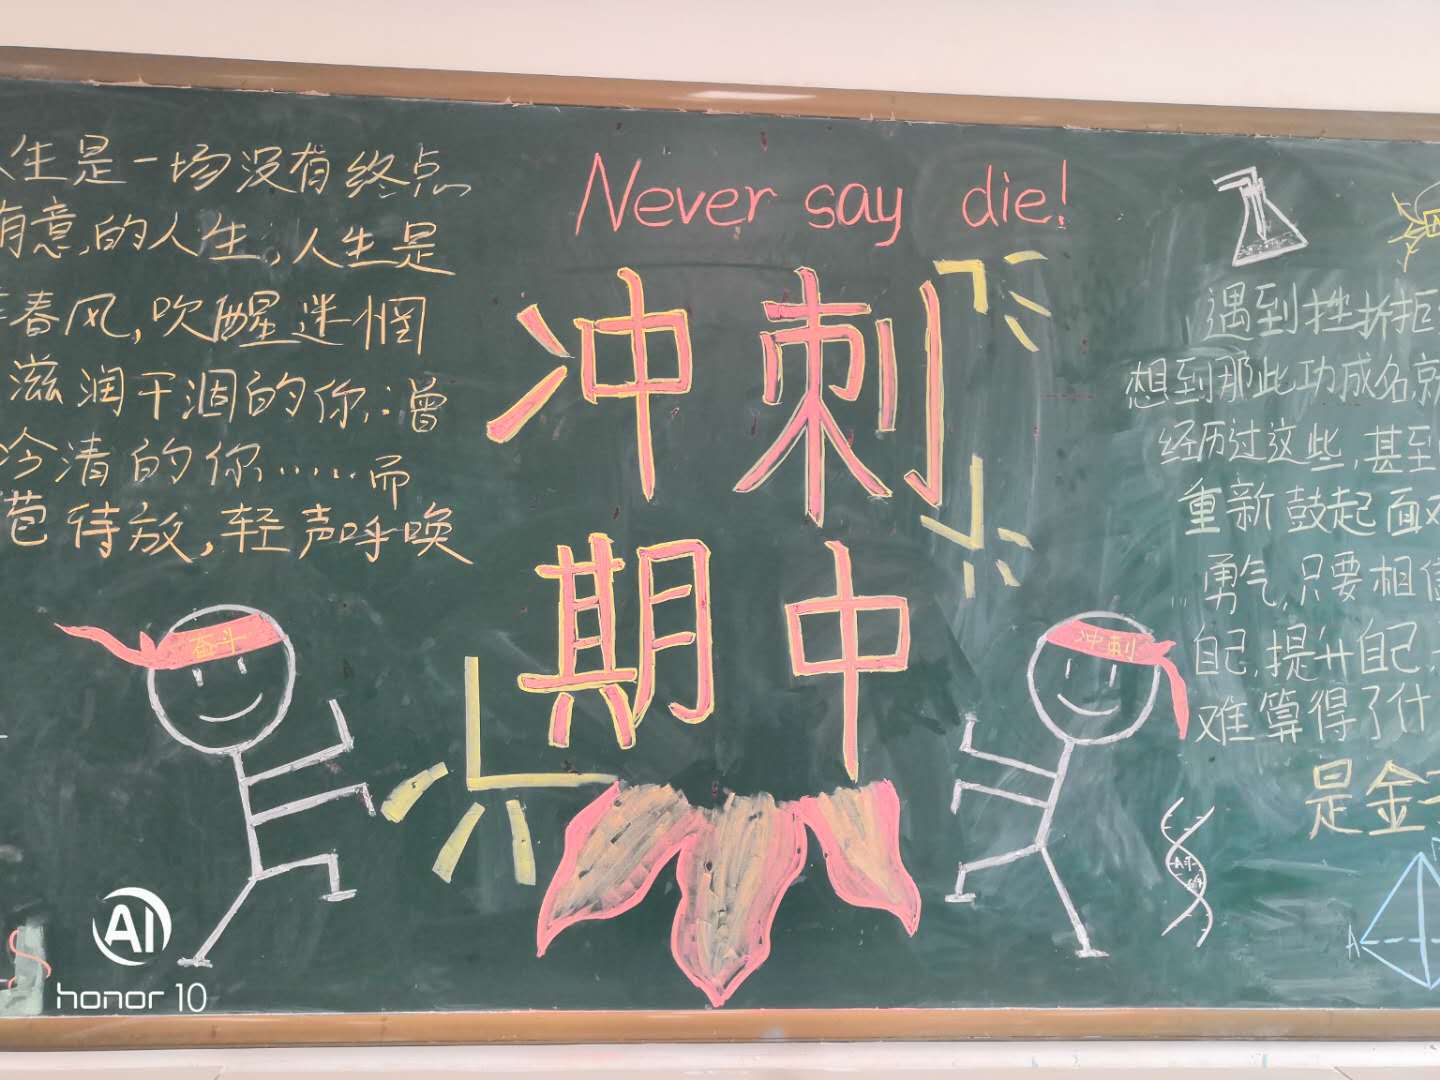 人生是一场没有终点
有意的人生;人生是
春风,吹醒迷惘
滋润干涸的你;曾
冷清的你……而
苞待放,轻声呼唤
Never say die!
冲刺
期中
奋斗
冲刺
遇到挫折拒
想到那些功成名就
经历过这些,甚至
重新鼓起面对
勇气,只要相信
自己,提升自己,
难算得了什
是金子
A
AI
honor 10